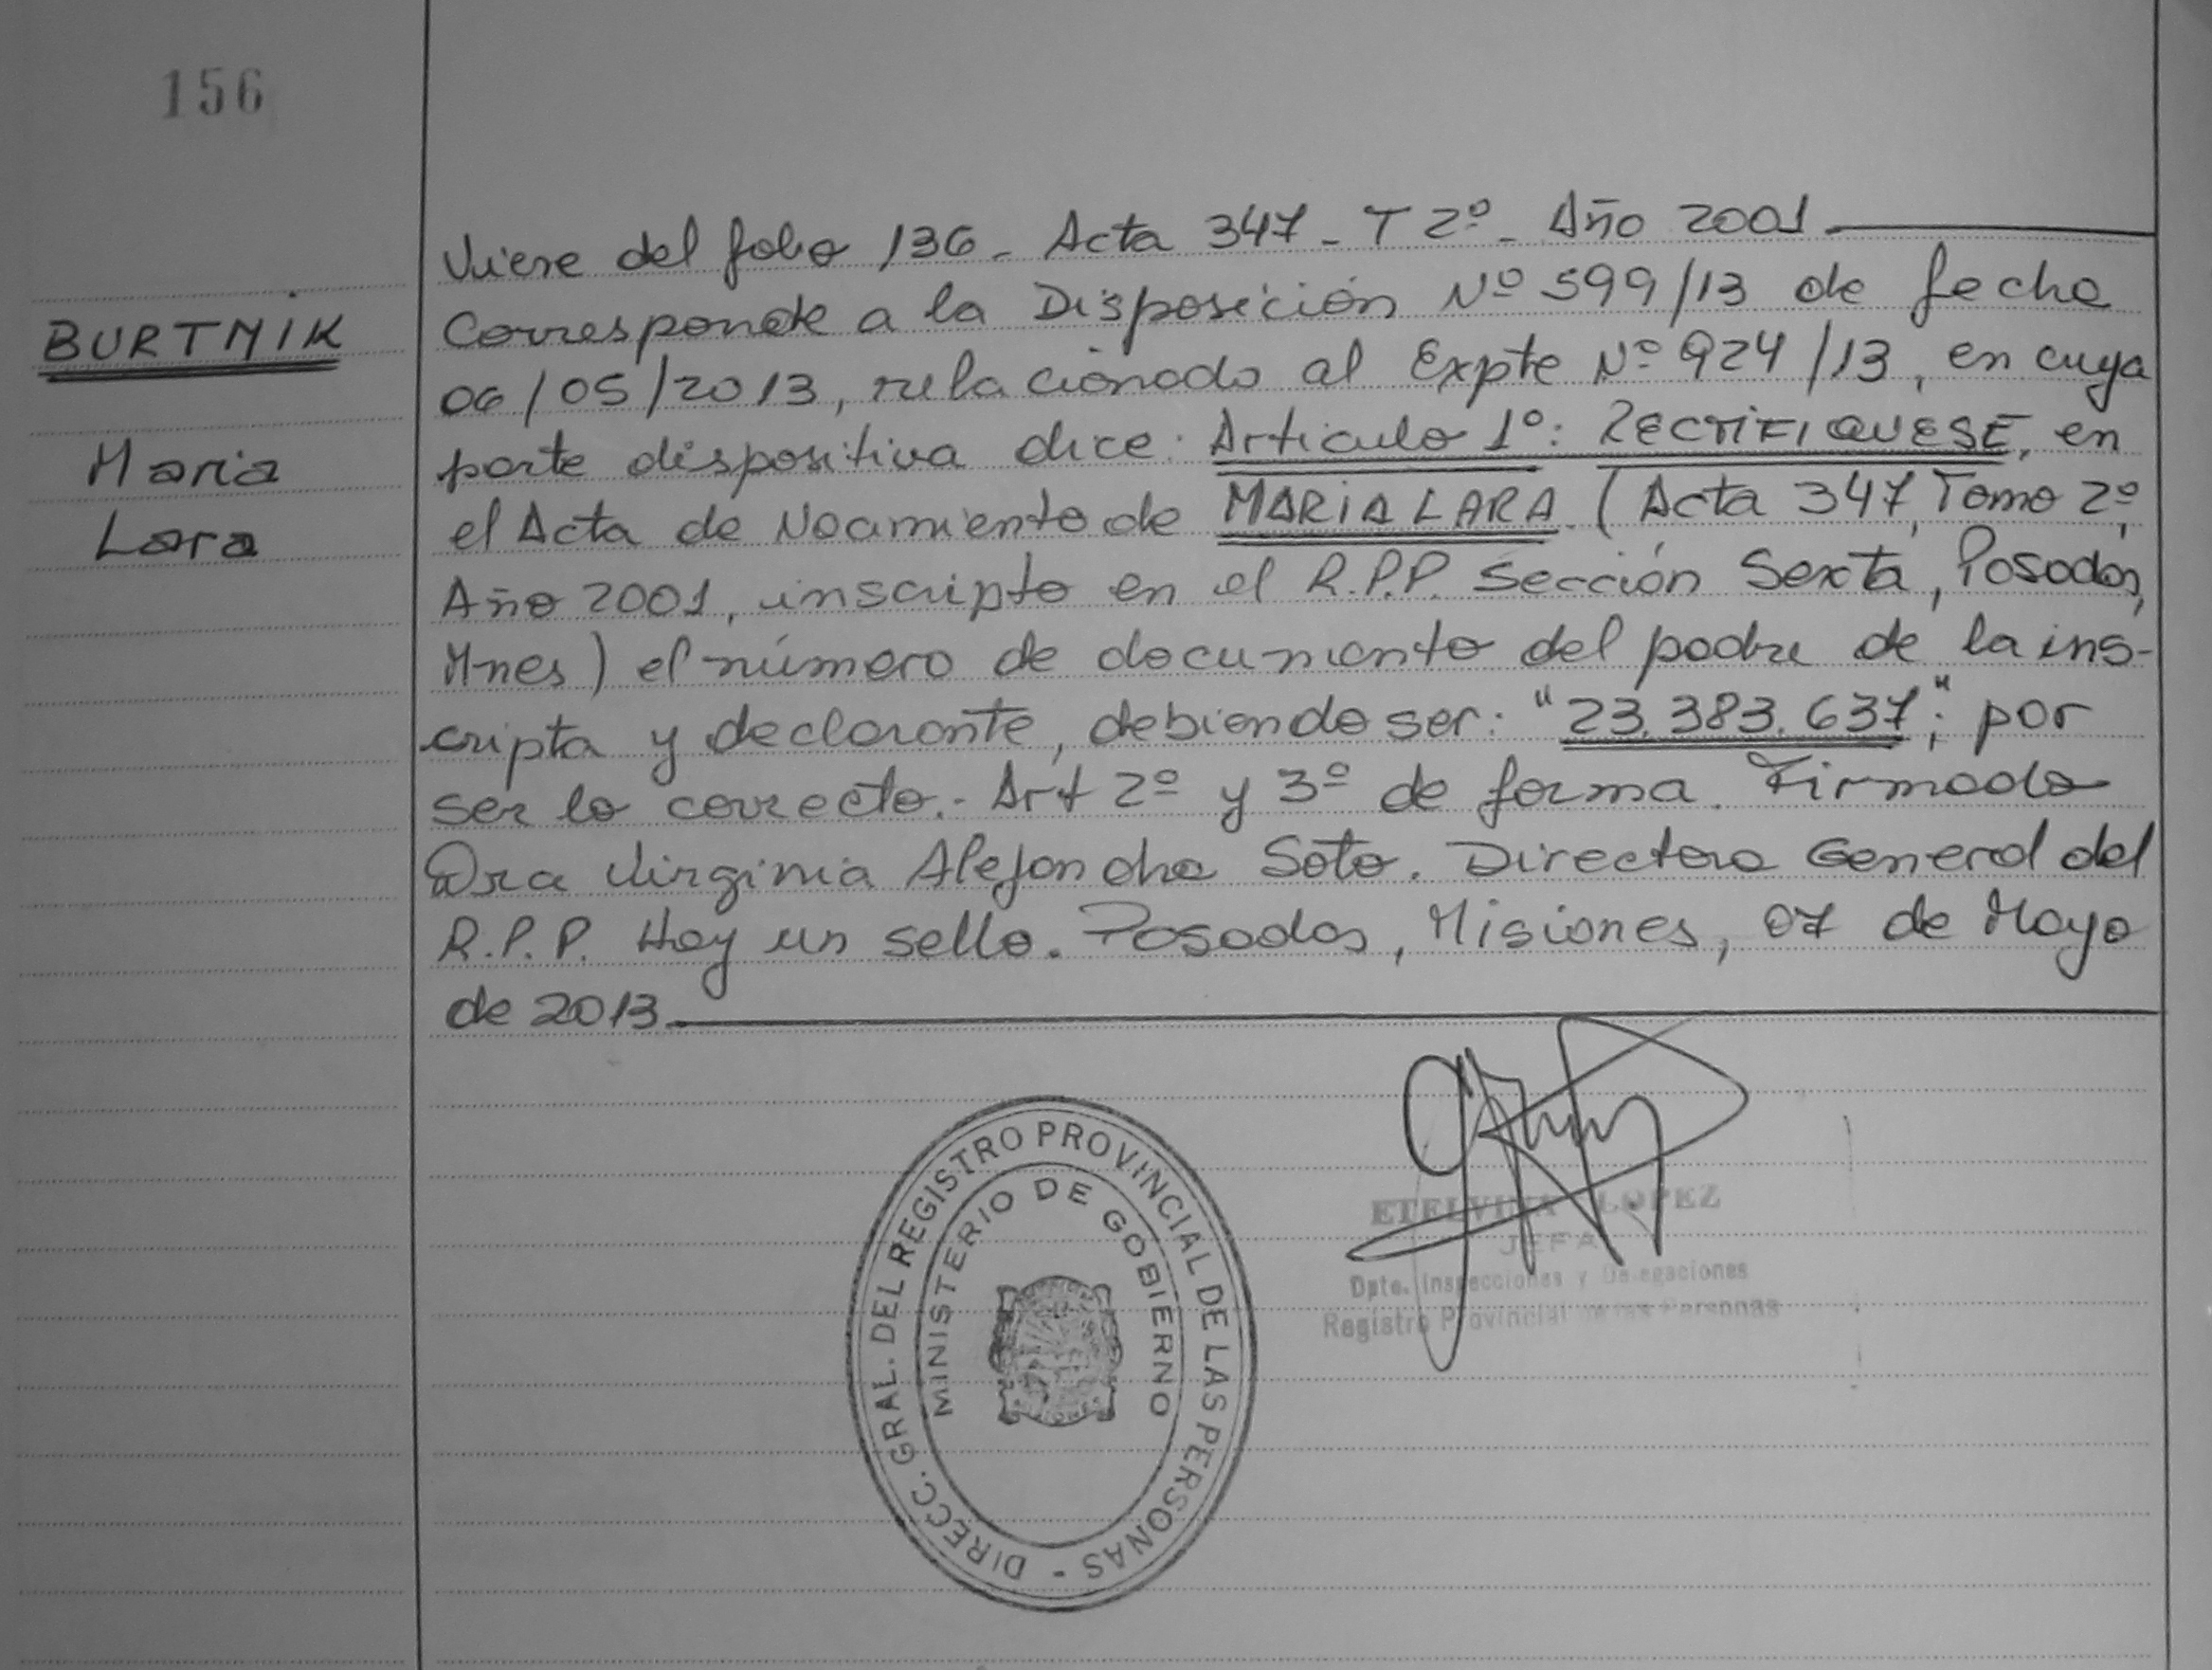 156
BURTNIK
Maria
Lara
Viene del folio 136 - Acta 347 - T 2º - Año 2001
Corresponde a la Disposición Nº 599/13 de fecha
06/05/2013, relacionado al Expte Nº 924/13, en cuya
parte dispositiva dice: Articulo 1º: RECTIFIQUESE, en
el Acta de Nacimiento de MARIA LARA (Acta 347, Tomo 2º,
Año 2001, inscripto en el R.P.P. Sección Sexta, Posadas,
Mnes) el número de documento del padre de la ins-
cripta y declarante, debiendo ser: "23.383.637"; por
ser lo correcto.- Art 2º y 3º de forma. Firmado
Dra Virginia Alejandra Soto. Directora General del
R.P.P. Hay un sello. Posadas, Misiones, 07 de Mayo
de 2013
DIRECC. GRAL. DEL REGISTRO PROVINCIAL DE LAS PERSONAS -
MINISTERIO DE GOBIERNO
ETELVINA LOPEZ
JEFA
Dpto. Inspecciones y Delegaciones
Registro Provincial de las Personas